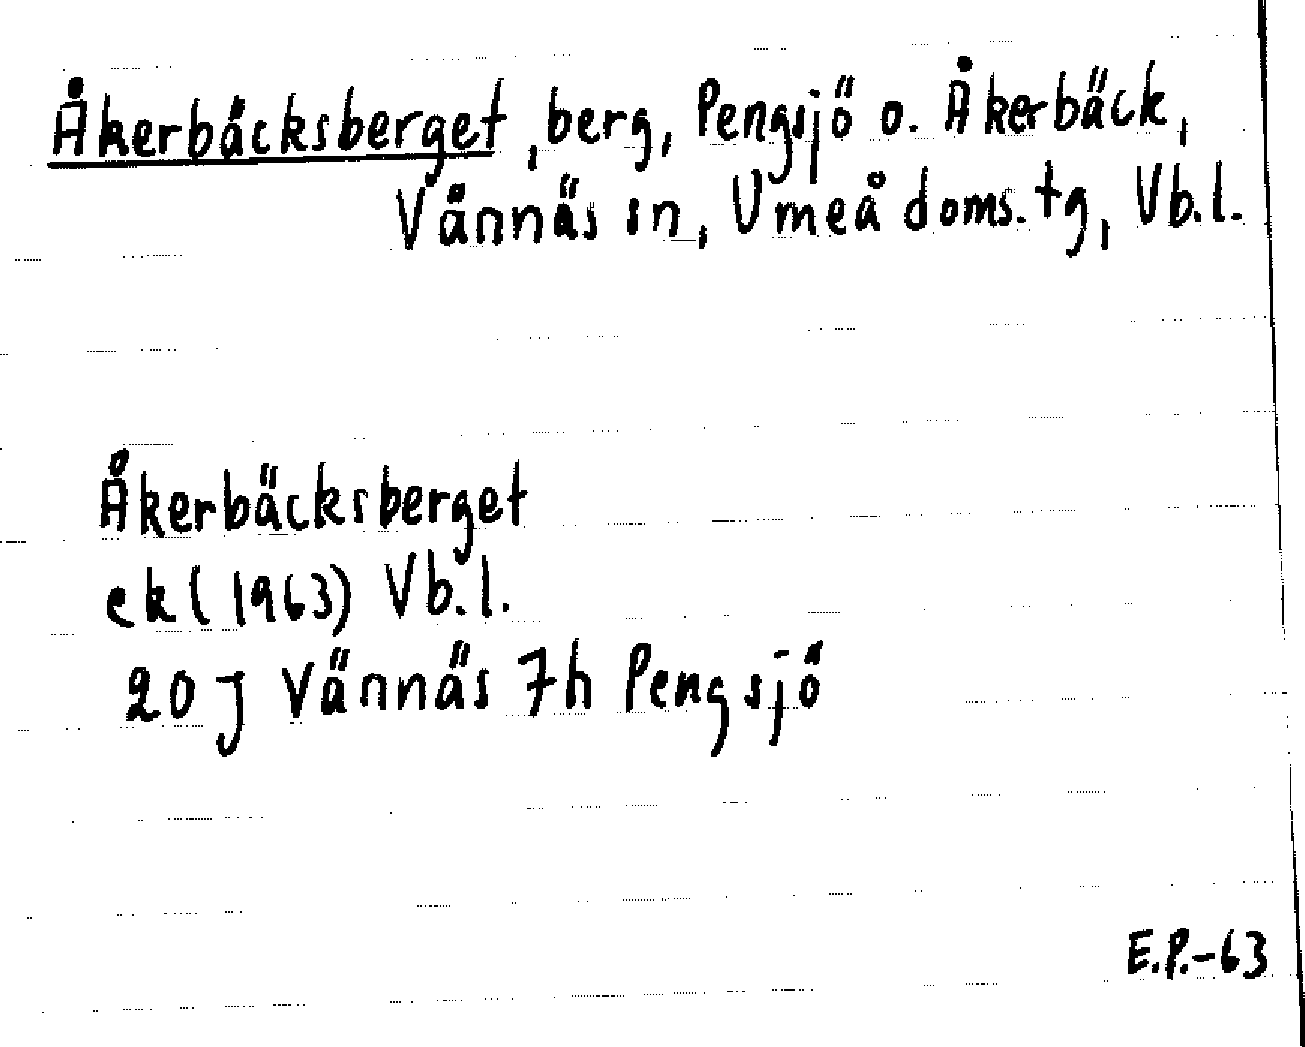 Åkerbäcksberget, berg, Pengsjö o. Åkerbäck,
Vännäs sn, Umeå doms.tg, Vb.l.
Åkerbäcksberget
ek (1963) Vb.l.
20 J Vännäs 7h Pengsjö
E.P.-63